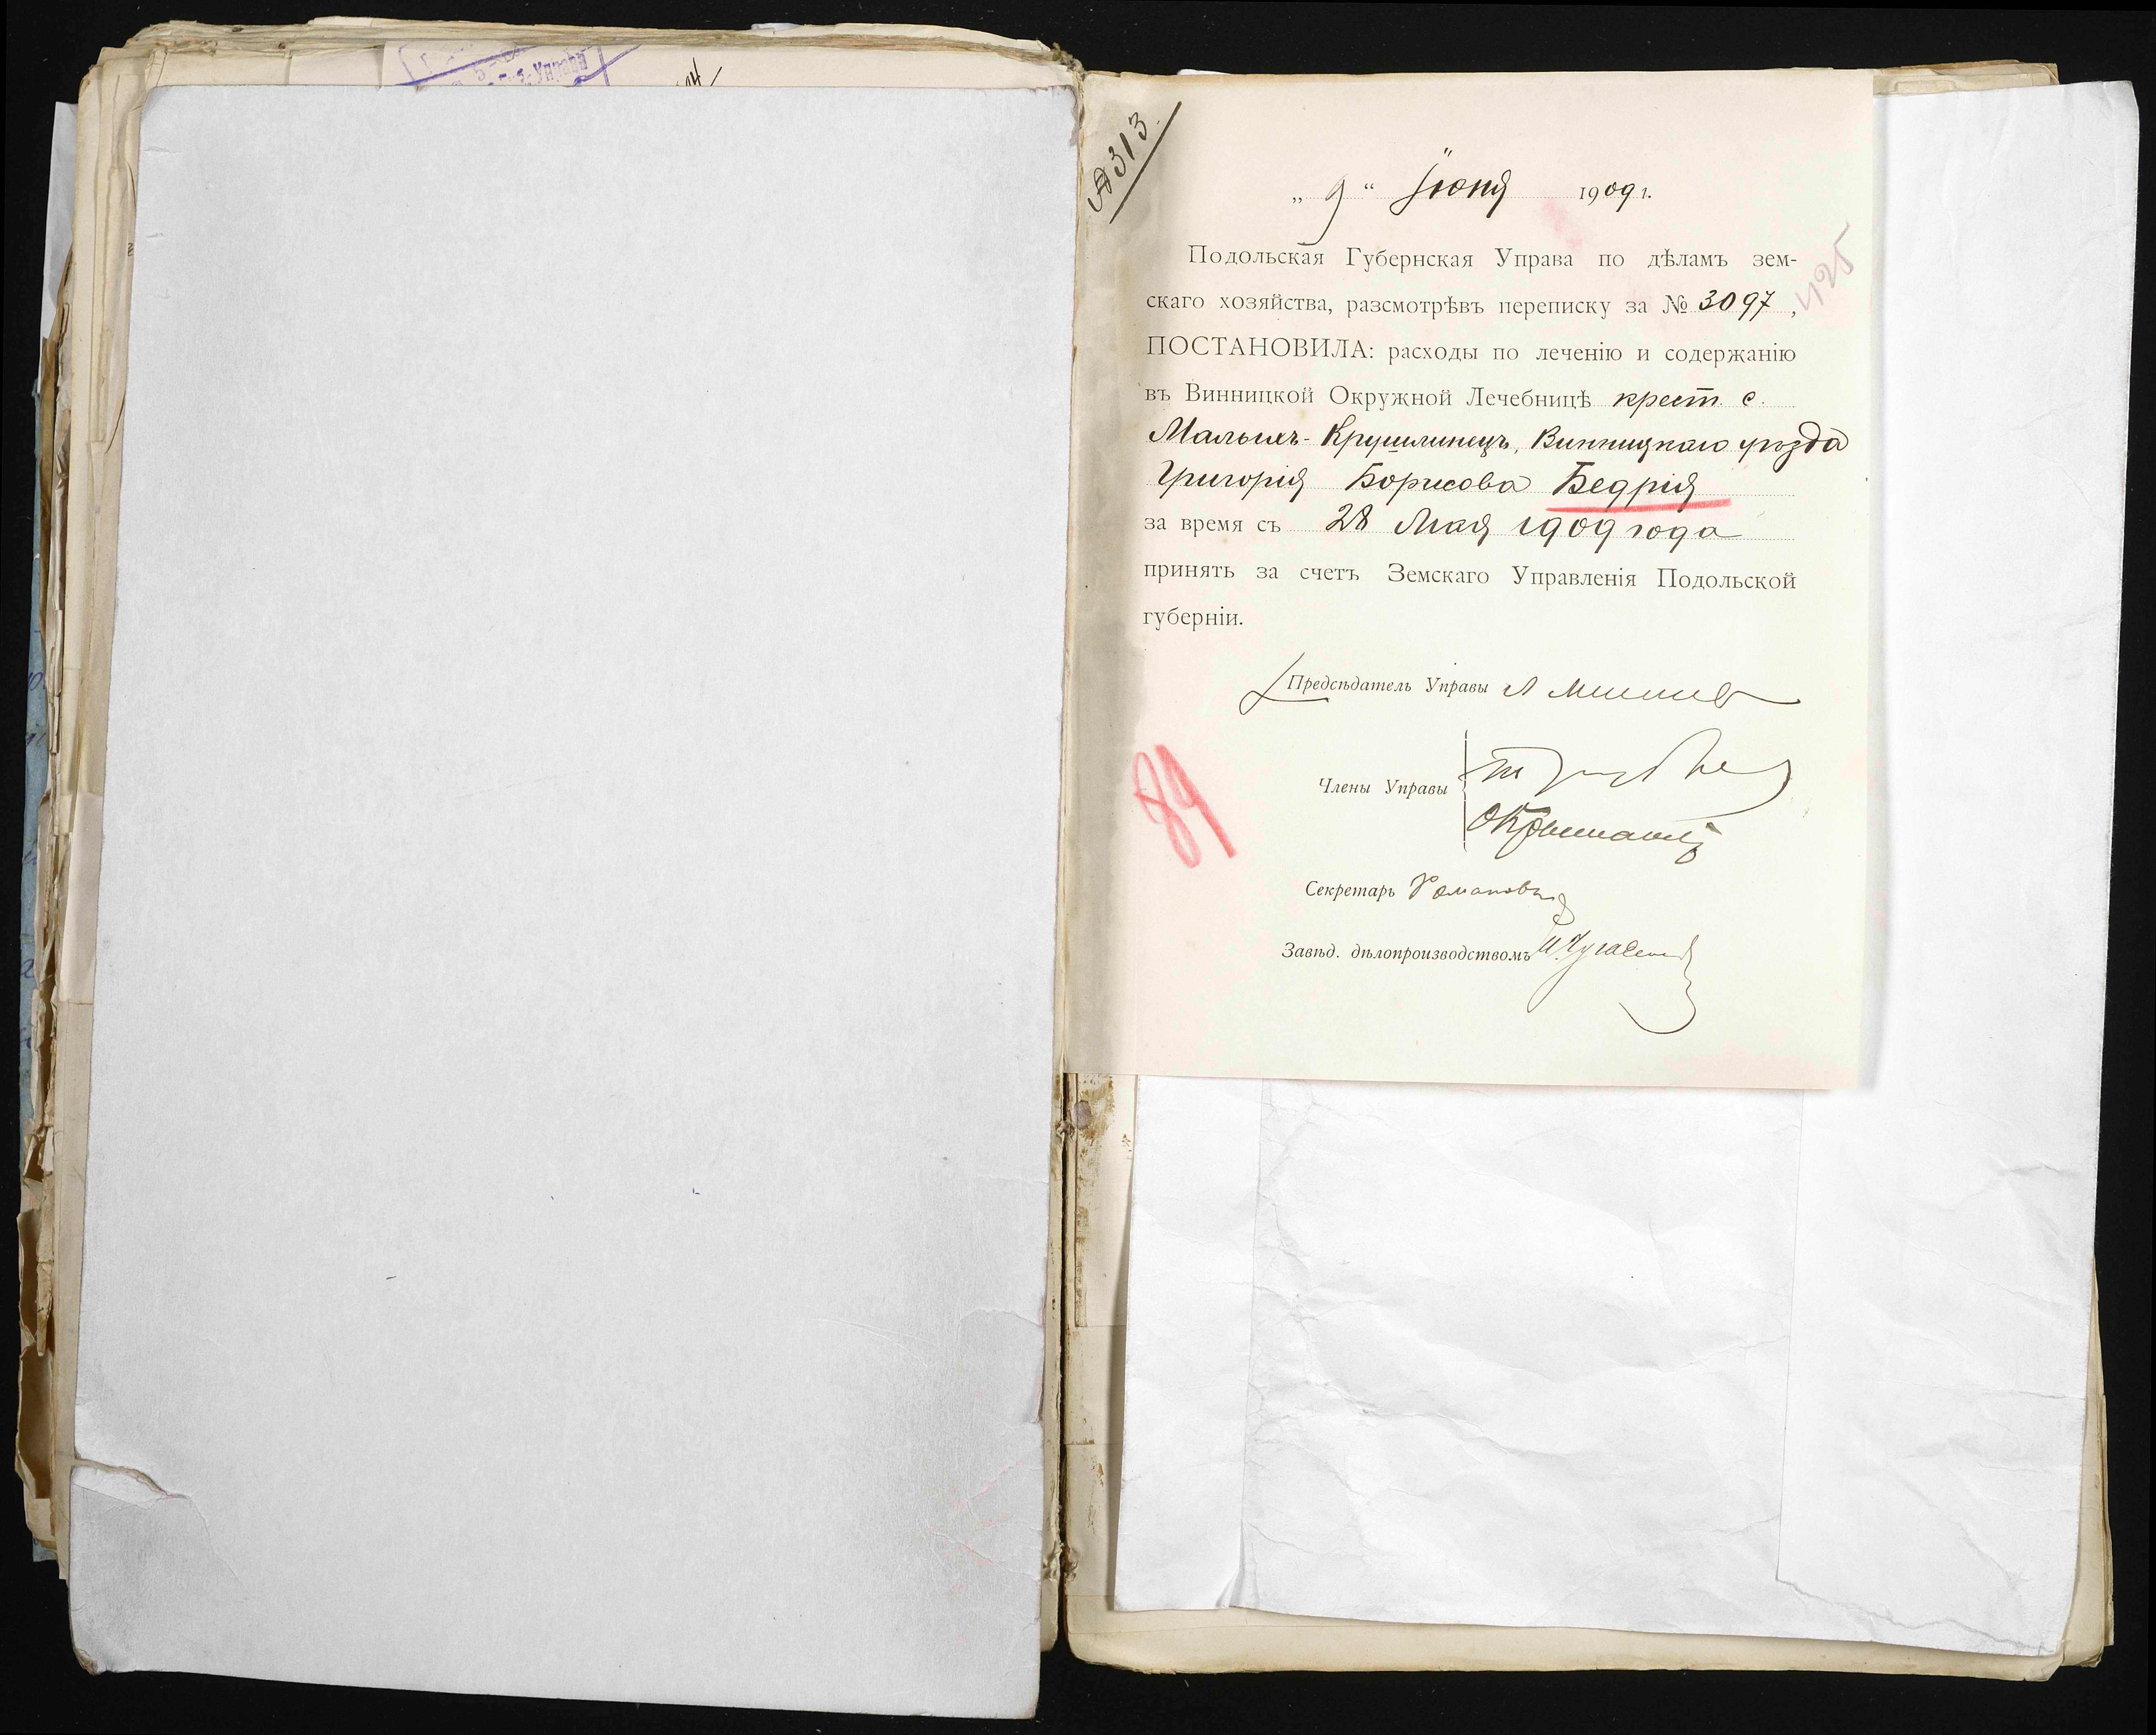 № 313.
„ 9 “ Іюня 1909 г.
425
Подольская Губернская Управа по дѣламъ зем-
скаго хозяйства, разсмотрѣвъ переписку за № 3097,
ПОСТАНОВИЛА: расходы по леченію и содержанію
въ Винницкой Окружной Лечебницѣ крест. с.
Малыхъ-Крушлинецъ, Винницкаго уѣзда
Григорія Борисова Бедрія
за время съ 28 Мая 1909 года
принять за счетъ Земскаго Управленія Подольской
губерніи.
Предсѣдатель Управы
Члены Управы
89
Секретарь Романовъ
Завѣд. дѣлопроизводствомъ